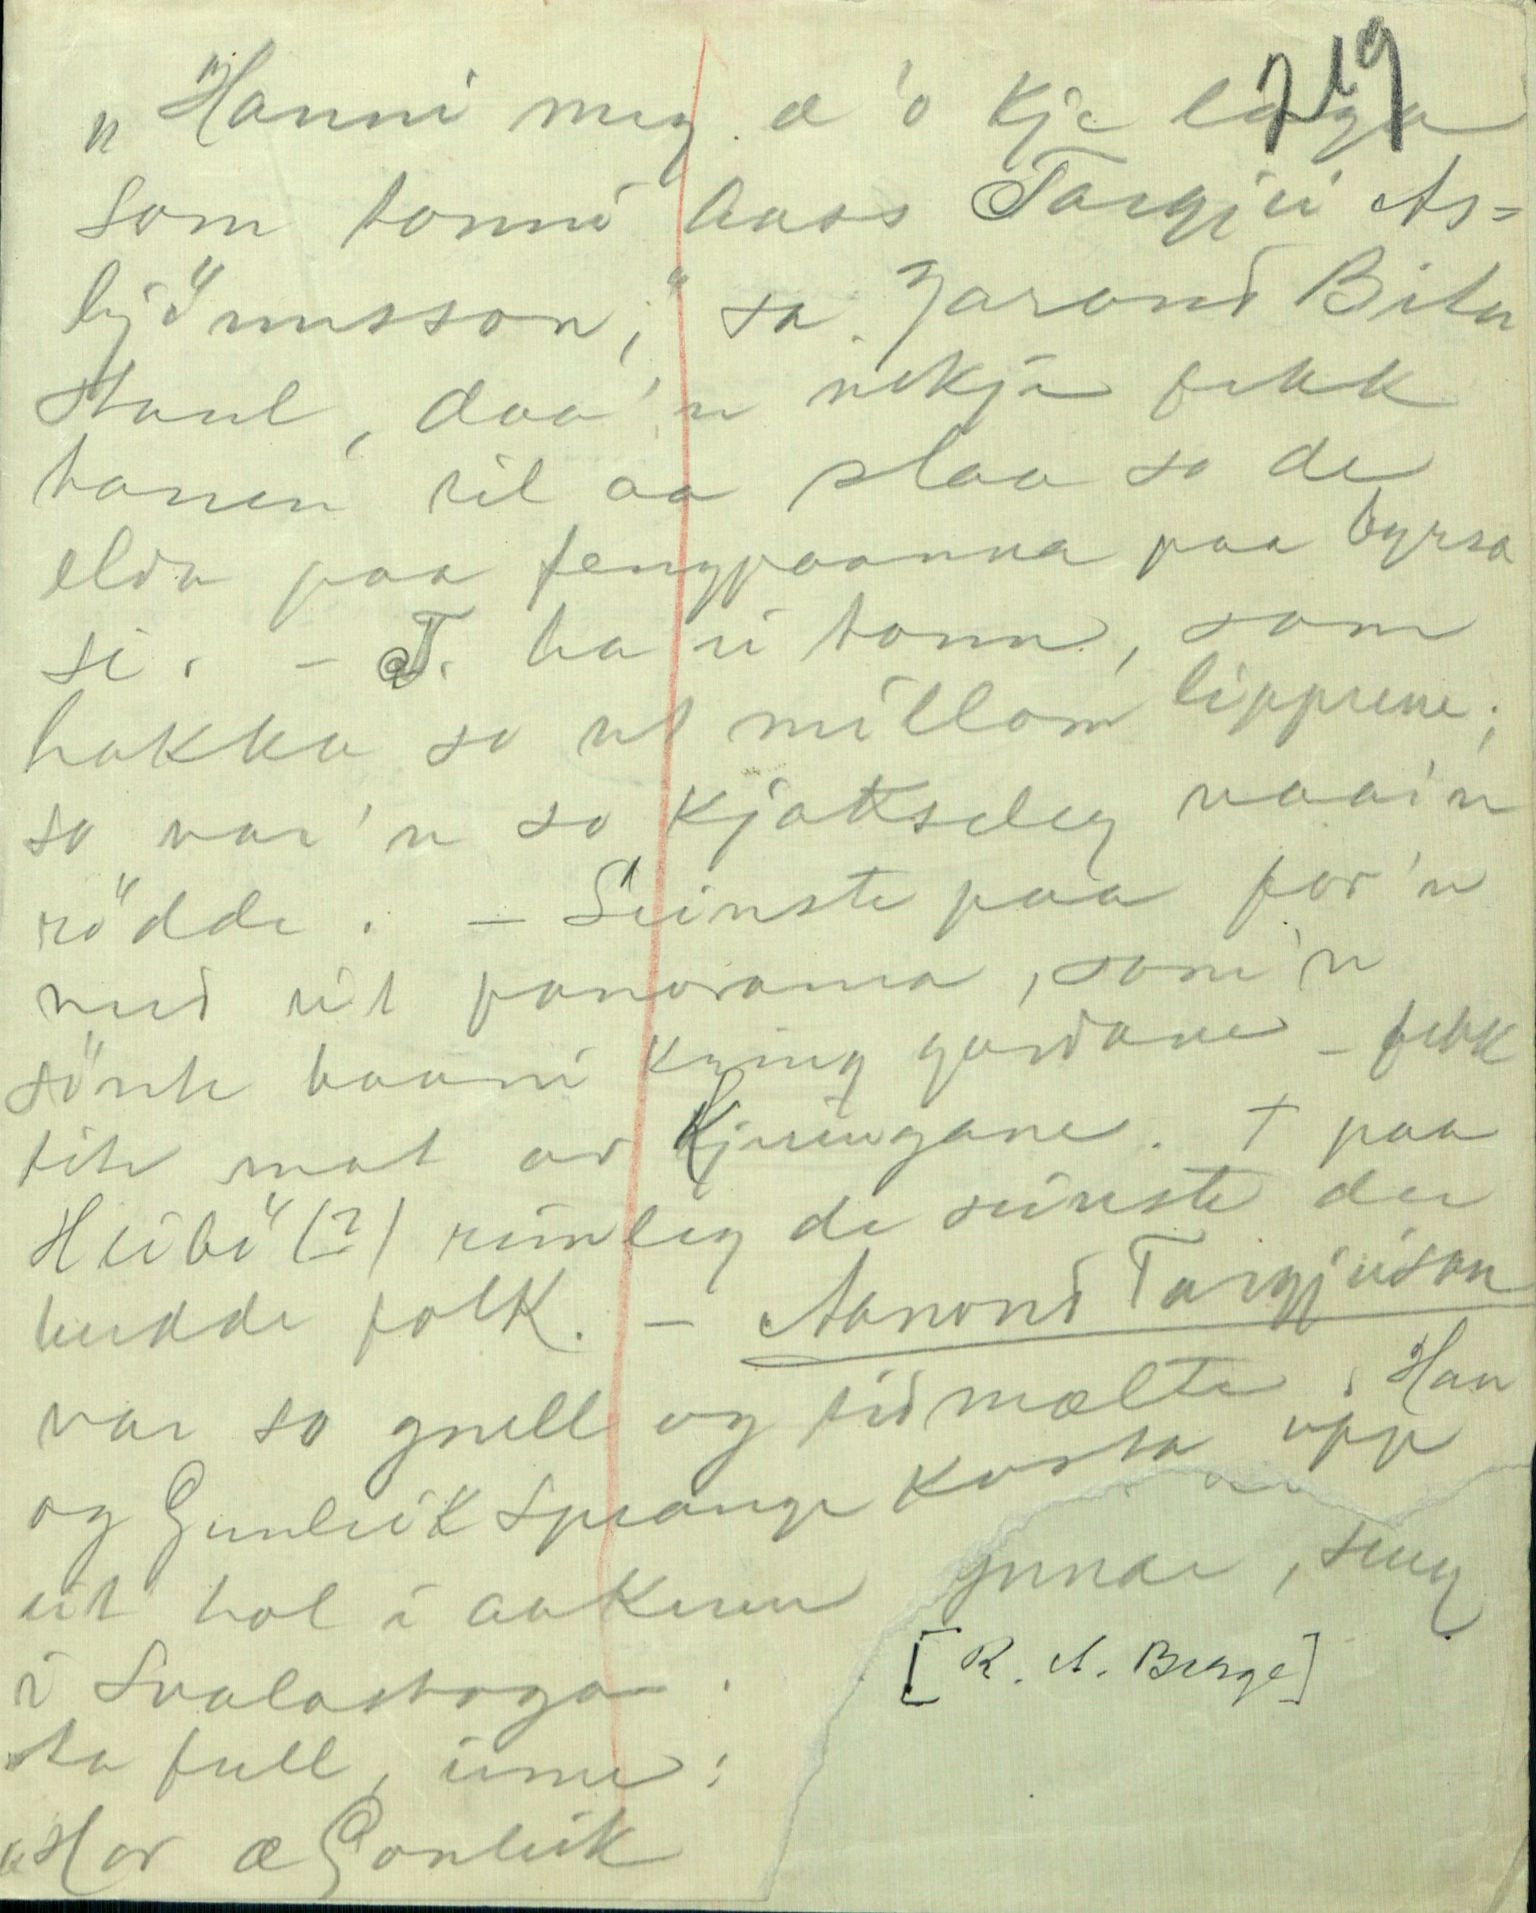 719
"Hanni meg æ 'o kje laga
som tonni haas Targjei As=
bjönnsson," sa Jarond Bitu
staul, daa 'n ikkje fekk
hanen til aa slaa so de
elda paa fengpaanna paa byrsa
si. - T. ha ei tonn, som
hakka so ut millom lippune;
so var 'n so kjakseleg vaai'n
rödde. - Seinste paa for'n
med eit panorama, som'n
sönte baani kring gardane - fekk
tite mat av kjeringane. † paa
Heibö (?) rimleg de seinste der
budde folk. - Aanond Targjeison
var so gnell og tidmælte. Han
og Gunleik Sprange kasta upp
eit hol i aakeren
i Svalastoga.
ta full, ime:
"Hor æ Gonleik
gunar, seng
[R. A. Berge]